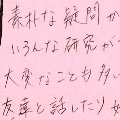 素朴な疑問か
いろんな研究が
大変なことも多い
友達と話したり